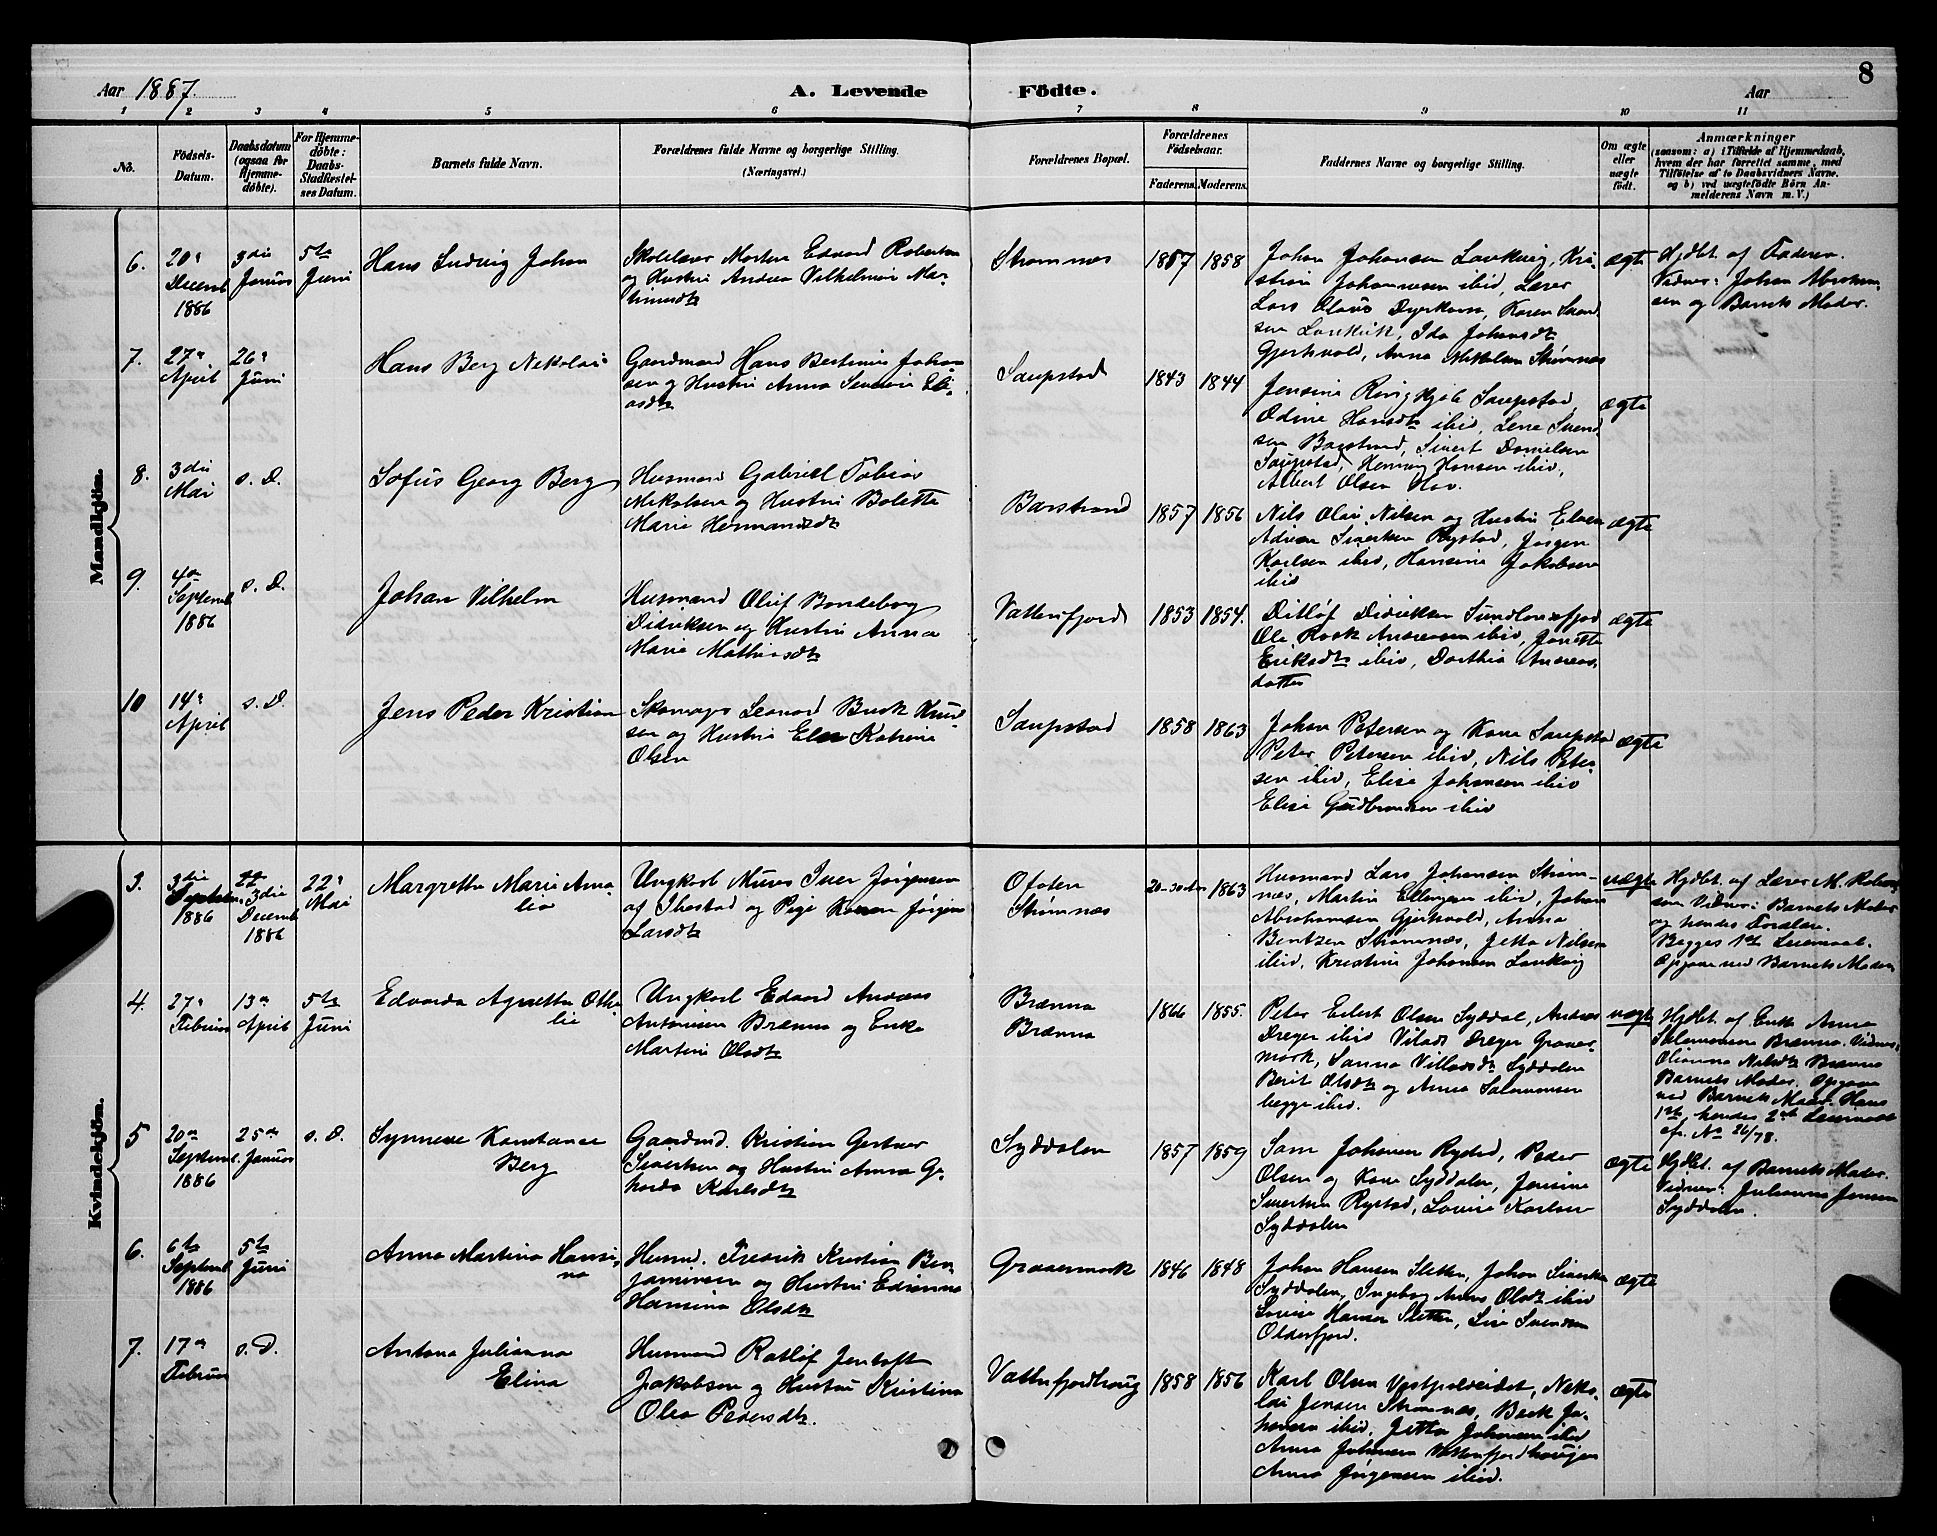 8
Aar 1887.
A. Levende Födte.
Aar
1 2 3 4 5 6 7 8 9 10 11
No.
Födsels-
Datum.
Daabsdatum
(ogsaa for
Hjemme-
döbte).
For Hjemme-
döbte:
Daabs-
Stadfæstel-
ses Datum.
Barnets fulde Navn.
Forældrenes fulde Navne og borgerlige Stilling.
(Næringsvei.)
Forældrenes Bopæl.
Forældrenes
Födselsaar.
Faderens. Moderens.
Faddernes Navne og borgerlige Stilling.
Om ægte
eller
uægte
födt.
Anmærkninger
(saasom: a) i Tilfælde af Hjemmedaab,
hvem der har forrettet samme, med
Tilföielse af to Daabsvidners Navne.
og b) ved uægtefödte Börn An-
melderens Navn m. V.)
Mandkjön.
6.
20de
Decemb
1886
3die
Januar
5te
Juni
Hans Ludvig Johan
Skolelærer Morten Edvard Robertsen
og Hustru Andrea Vilhelmine Mar-
tinusdtr
Strømnes
1857
1858
Johan Johansen Laukvig, Kri-
stine Johannesen ibid, Lærer
Lars Olaus Dyrkorn, Karen Svend
sen Laukvik, Ida Johansdtr
Gjerkvold, Anna Mikkelsen Strømnes
ægte
Hjdbt. af Faderen.
Vidner: Johan Abraham-
sen og Barnets Moder.
7.
27de
April
26de
Juni
Hans Berg Nikolai
Gaardmand Hans Bertinius Johan-
sen og Hustru Anna Sevrine Eli-
asdtr
Saupstad
1843
1844
Jensine Ringkjøb Saupstad,
Odine Hansdtr ibid, Lene Svend
sen Barstrand, Sivert Danielsen
Saupstad, Henning Hansen ibid,
Albert Olsen Hov.
ægte
8.
3die
Mai
s. D.
Sofus Georg Berg
Husmand Gabriel Tobias
Nikolsen og Hustru Bolette
Marie Hermansdtr
Barstrand
1857
1856
Nils Olai Nilsen og Hustru Elen
Adrian Sivertsen Rystad, Jørgen
Karlsen ibid, Hansine Jakobsen
ibid
ægte
9.
4de
Septemb
1886
s. D.
Johan Vilhelm
Husmand Oluf Bondeborg
Didriksen og Hustru Anna
Marie Mathisdtr
Vatterfjord
1853
1854.
Ditløf Didriksen Sundlansfjord
Ole Rask Andreassen ibid, Janette
Eriksdtr ibid, Dorthea Andreas-
datter
ægte
10
14de
April
s. D.
Jens Peder Kristian
Skomager Leonard Buck Knud-
sen og Hustru Elen Katrine
Olsen
Saupstad
1858
1863
Johan Petersen og Kone Saupstad
Peter Petersen ibid, Nils Peter-
sen ibid, Elise Johansen ibid
Elise Gudbrandsen ibid
ægte
Kvindekjön.
3.
3die
Septemb
1886
3die
Decemb
1886
22de
Mai
Margrethe Marie Ama-
lie
Ungkarl Murer Iver Jørgensen
af Ibestad og Pige Karen Jørgine
Larsdtr
Ofoten
Strømnæs
20-30 Aar
1863
Husmand Lars Johansen Strøm-
næs, Martin Ellingsen ibid, Johan
Abrahamsen Gjerkvold, Anna
Bentzen Strømnæs, Jette Nilsen
ibid, Kristine Johansen Laukvig
uægte
Hjdbt. af Lærer M. Robert
sen Vidner: Barnets Moder
og hendes Forældre.
Begges 1ste Leiermaal.
Opgave ved Barnets Moder
4.
27de
Februar
13de
April
5te
Juni
Edvarda Agnethe Othi-
lie
Ungkarl Edvard Andreas
Antonisen Brænna og Enke
Martine Olsdtr
Brænna
Brænna
1866
1855.
Peter Eilert Olsen Syddal, Andreas
Dreyer ibid Vilads Dreyer Graver-
mark, Sanna Villadsdtr Syddalen
Berit Olsdtr og Anna Salomonsen
begge ibid.
uægte
Hjdbt. af Enke Anna
Salomonsen Brænna. Vidner:
Olianna Nilsdtr Brænna
Barnets Moder. Opgave
ved Barnets Moder. Hans
1ste, hendes 2det Leiermaal
cfr. No 26/78.
5
20de
Septemb.
1886
25de
Januar
s. D.
Synneve Konstance
Berg
Gaardmd. Kristian Gertner
Sivertsen og Hustru Anna Ge-
harda Karlsdtr
Syddalen
1857
1859
Sam Johansen Rystad, Peder
Olsen og Kone Syddalen, Jensine
Sivertsen Rystad, Lovise Karlsen
Syddalen
ægte
Hjdbt. af Barnets Moder.
Vidner: Julianna Jensen
Syddalen.
6.
6te
Septemb
1886
5te
Juni
Anna Martina Hansi-
na
Husmd. Fredrik Kristian Ben-
jaminsen og Hustru Edianna
Hansina Olsdtr
Gravermark
1846
1848
Johan Hansen Sletten, Johan Sivertsen
Syddalen, Ingeborg Anna Olsdtr ibid
Lovise Hansen Sletten, Lise Svendsen
Olderfjord.
ægte
7.
17de
Februar
s. D.
Antona Julianna
Elina
Husmand Ratløf Jentoft
Jakobsen og Hustru Kristina
Olea Pedersdtr.
Vatterfjordhaug
1858
1856
Karl Olsen Vestpolleidet, Niko-
lai Jensen Strømnæs, Berk Jo-
hansen ibid, Jette Johansen ibid
Anna Johansen Vatterfjordhaugen
Anna Jørgensen ibid.
ægte